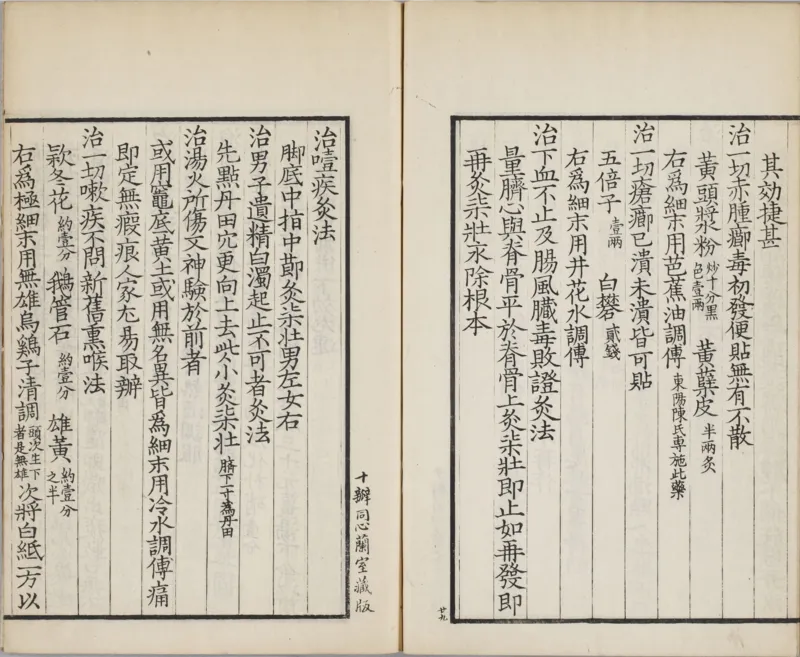 其効捷甚
治一切赤腫癤毒初發便貼無有不散
黃頭漿粉 炒十分黑色壹兩 黃蘗皮 半兩炙
右爲細末用芭蕉油調傅 東陽陳氏専施此藥
治一切瘡癤已潰未潰皆可貼
五倍子 壹兩 白礬 貳錢
右爲細末用井花水調傅
治下血不止及腸風臟毒敗證灸法
量臍心與脊骨平於脊骨上灸柒壯即止如再發即
再灸柒壯永除根本
廿九
治噎疾灸法
脚底中指中節灸柒壯男左女右
治男子遺精白濁起止不可者灸法
先點丹田穴更向上去些小灸柒壯 臍下一寸爲丹田
治湯火所傷又神驗於前者
或用竈底黃土或用無名異皆爲細末用冷水調傅痛
即定無瘢痕人家尤易取辦
治一切嗽疾不問新舊熏喉法
款冬花 約壹分 鵝管石 約壹分 雄黃 約壹分之半
右爲極細末用無雄烏鷄子清調 頭次生下者是無雄 次將白紙一方以
十瓣同心蘭室藏版